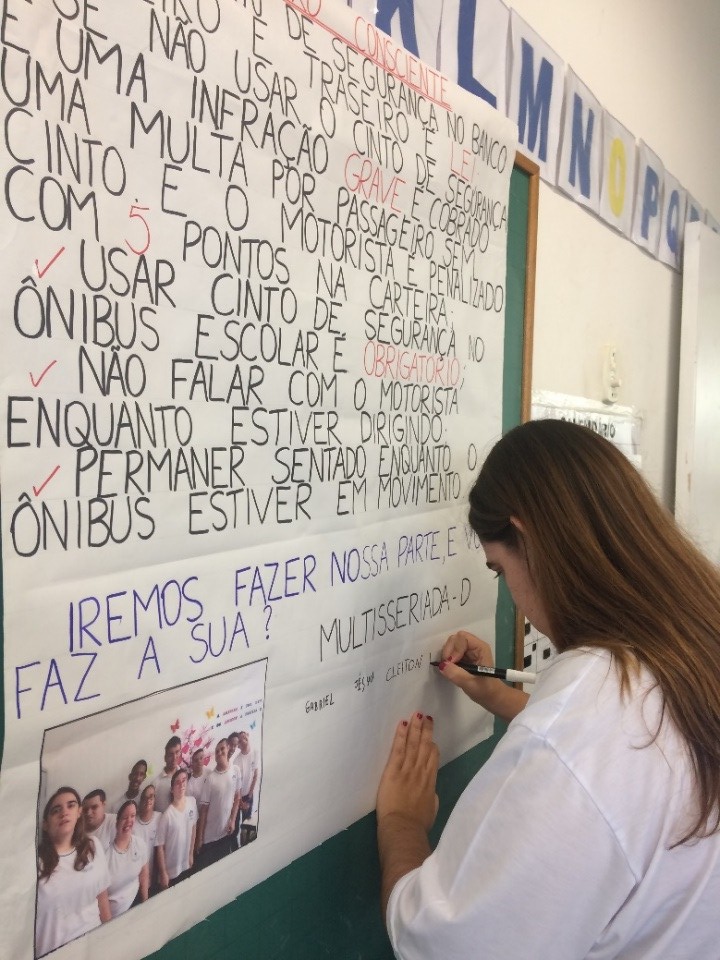 CONSCIENTE
DE SEGURANÇA NO BANCO
E TRASEIRO É LEI;
SE NÃO USAR O CINTO DE SEGURANÇA
É UMA INFRAÇÃO GRAVE E COBRADO
UMA MULTA POR PASSAGEIRO SEM
CINTO E O MOTORISTA É PENALIZADO
COM 5 PONTOS NA CARTEIRA;
✓ USAR CINTO DE SEGURANÇA NO
ÔNIBUS ESCOLAR É OBRIGATÓRIO;
✓ NÃO FALAR COM O MOTORISTA
ENQUANTO ESTIVER DIRIGINDO;
✓ PERMANER SENTADO ENQUANTO O
ÔNIBUS ESTIVER EM MOVIMENTO
IREMOS FAZER NOSSA PARTE, E
FAZ A SUA?
MULTISSERIADA-D
GABRIEL
K L M N O P Q